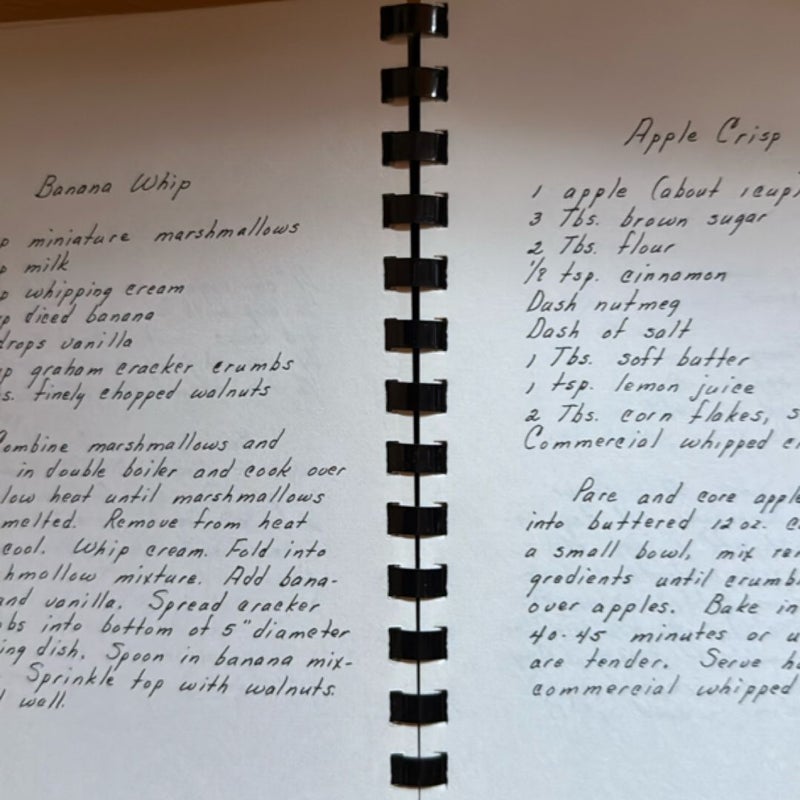 Banana Whip
p miniature marshmallows
p milk
p whipping cream
p diced banana
drops vanilla
p graham cracker crumbs
s. finely chopped walnuts
Combine marshmallows and
in double boiler and cook over
low heat until marshmallows
melted. Remove from heat
cool. Whip cream. Fold into
hmallow mixture. Add bana-
and vanilla. Spread cracker
bs into bottom of 5" diameter
ing dish. Spoon in banana mix-
. Sprinkle top with walnuts.
l well.
Apple Crisp
1 apple (about 1 cup)
3 Tbs. brown sugar
2 Tbs. flour
1/8 tsp. cinnamon
Dash nutmeg
Dash of salt
1 Tbs. soft butter
1 tsp. lemon juice
2 Tbs. corn flakes, s
Commercial whipped c
Pare and core apple
into buttered 12 oz. c
a small bowl, mix re
gredients until crumb
over apples. Bake in
40-45 minutes or u
are tender. Serve h
commercial whipped